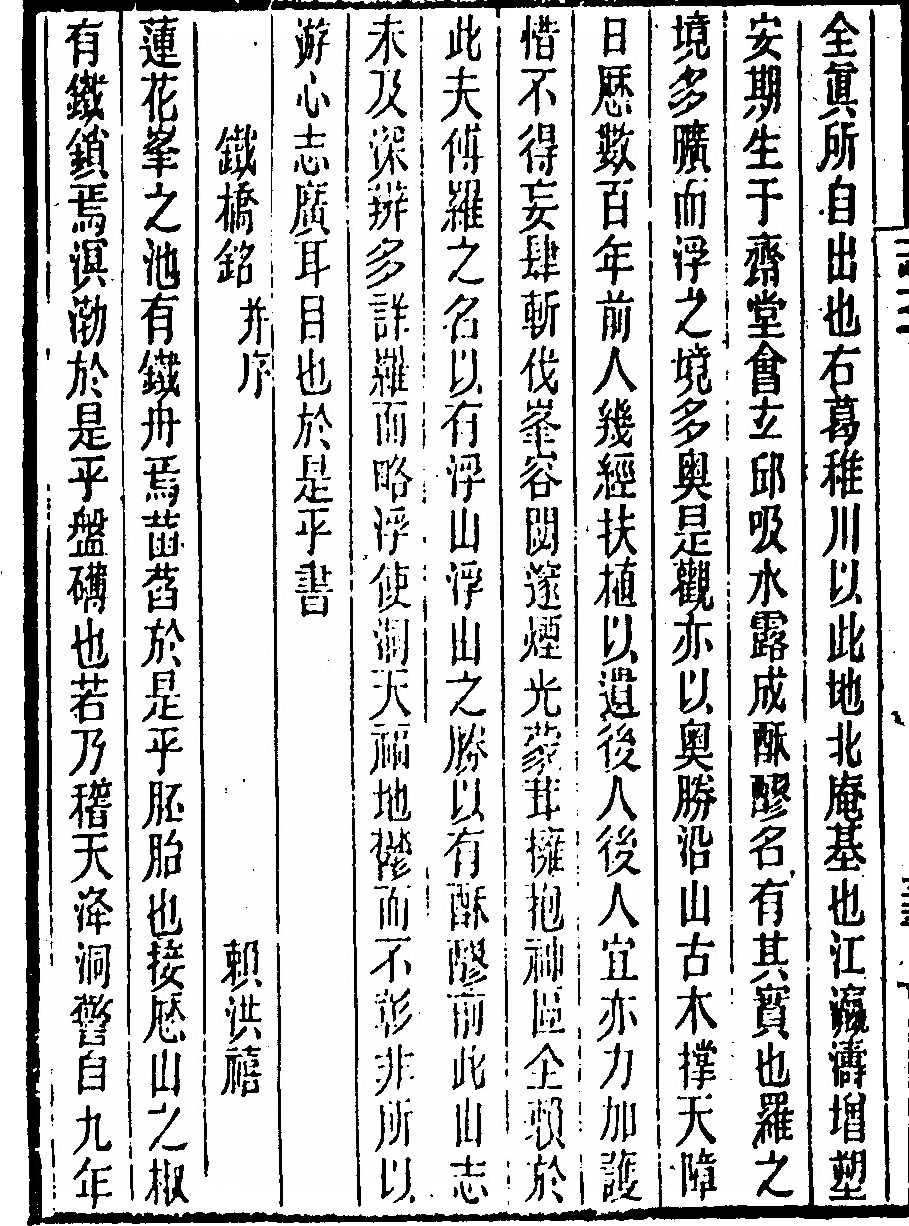 全眞所自出也右葛稚川以此地北庵基也江瀛濤增塑
安期生于齋堂會立邱吸水露成酥醪名有其實也羅之
境多曠而浮之境多奧是觀亦以奧勝沿山古木撑天障
日歷數百年前人幾經扶植以遺後人後人宜亦力加護
惜不得妄肆斬伐峯谷閟邃煙光蒙茸擁抱神區全賴於
此夫傅羅之名以有浮山浮山之勝以有酥醪前此山志
未及深辨多詳羅而略浮使洞天福地鬱而不彰非所以
遊心志廣耳目也於是乎書
鐵橋銘 并序 賴洪禧
蓮花峯之池有鐵舟焉菡萏於是乎胚胎也接歷山之椒
有鐵鎖焉溟渤於是乎盤礴也若乃稽天洚洞警自九年